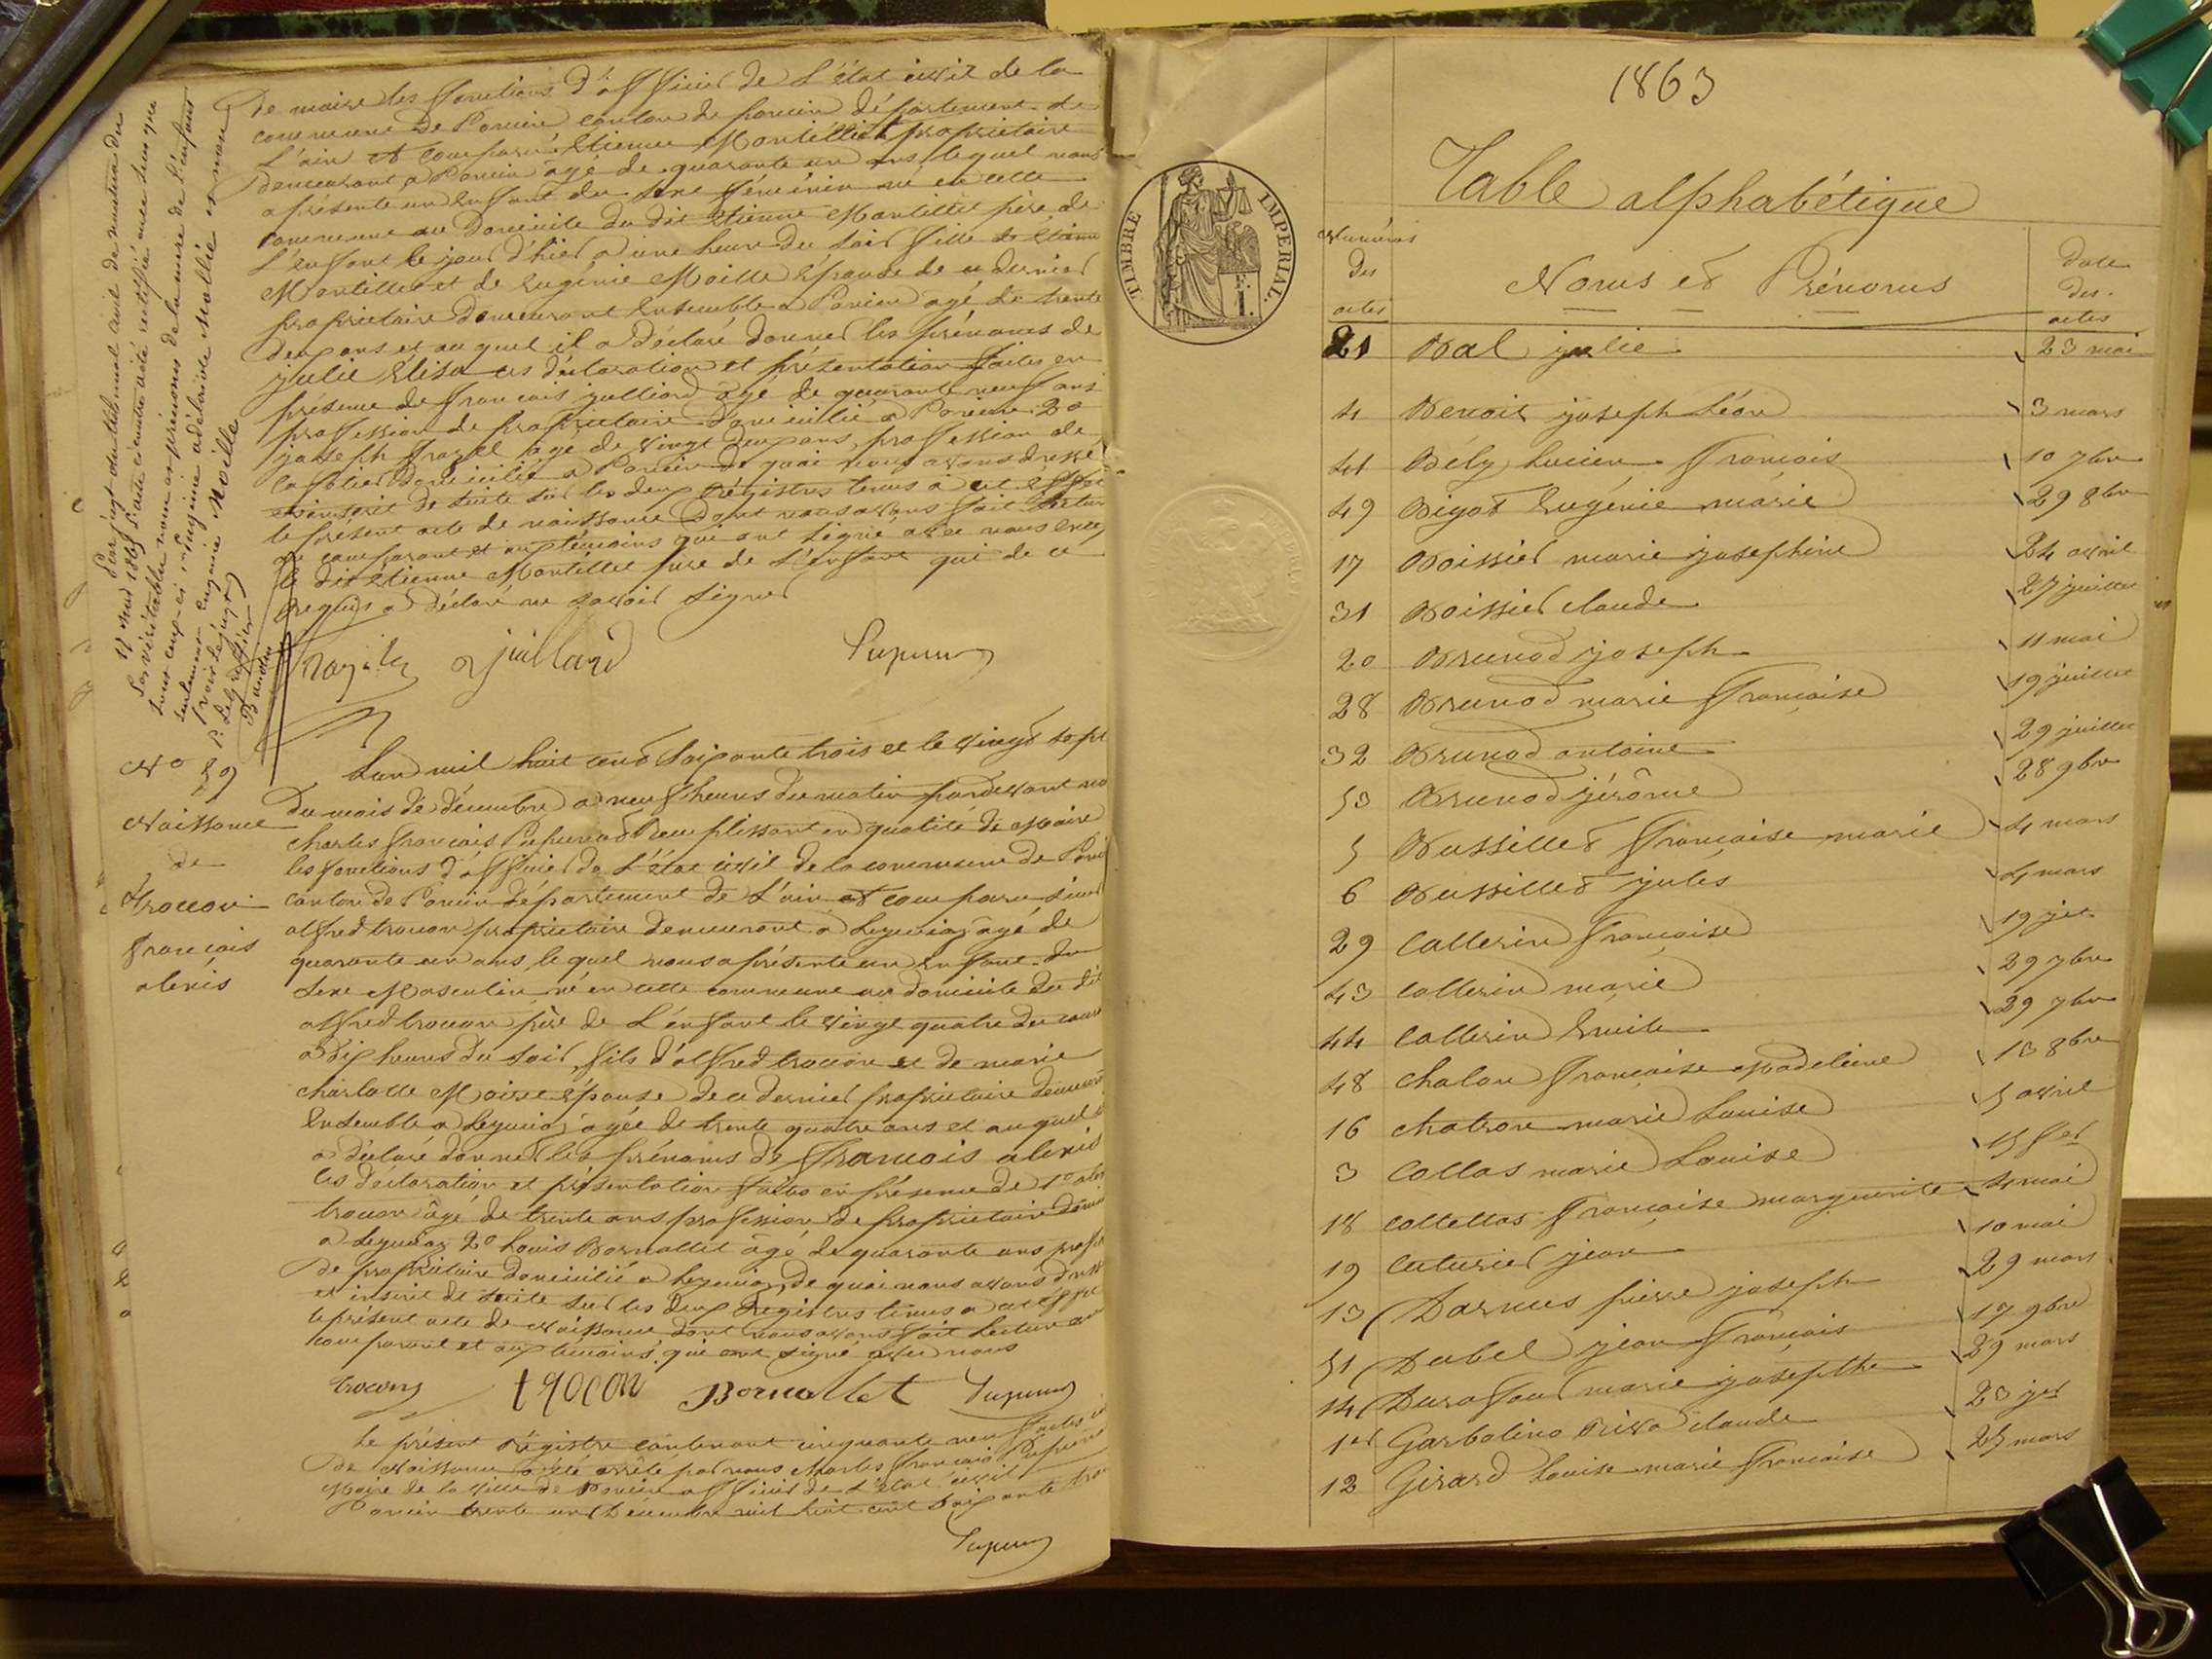 de maire les fonctions d'officier de l'état civil de la
commune de Poncin canton de Poncin département de
l'ain est comparu Etienne Montillet propriétaire
demeurant à Poncin âgé de quarante un ans, lequel nous
a présenté un enfant du sexe féminin né en cette
commune au domicile du dit Etienne Montillet père de
l'enfant le jour d'hier à une heure du soir fille de Etienne
Montillet et de Eugénie Moille épouse de ce dernier
propriétaire demeurant ensemble à Poncin âgé de trente
deux ans et auquel il a déclaré donner les prénoms de
julie Elisa ces déclaration et présentation faites en
présence de francois julliard âgé de quarante neuf ans
profession de propriétaire domicilié à Poncin 2o
joseph âgé de vingt deux ans, profession de
domicilié à Poncin de quoi nous avons dressé
et inscrit de suite sur les deux régistres tenus à cet effet
le présent acte de naissance dont nous avons fait lecture
au comparant et aux témoins qui ont signé avec nous
le dit Etienne Montillet père de l'enfant qui de ce
requis a déclaré ne savoir signer
juillard
Par jugt du tribunal civil de nantua du
1865 l'acte ci contre a été rectifié en ce sens que
les véritables nom et prénoms de la mère de l'enfant
sont ceux-ci : Eugénie adélaïde Mollie et non
seulement Eugénie Moille
No 59
Naissance
de
trocon
francois
alexis
L'an mil huit cent soixante trois et le vingt sept
du mois de décembre à neuf heures du matin pardevant
charles francois remplissant en qualité de Maire
les fonctions d'officier de l'état civil de la commune de
canton de Poncin département de l'ain est comparu
alfred trocon propriétaire demeurant à Leymiaz âgé de
quarante un ans, lequel nous a présenté un enfant du
sexe Masculin né en cette commune au domicile du dit
alfred trocon père de l'enfant le vingt quatre du
à dix heures du soir, fils d'alfred trocon et de marie
charlotte épouse de ce dernier propriétaire
ensemble à Leymiaz âgée de trente quatre ans et auquel
a déclaré donner les prénoms de francois alexis
ces déclaration et présentation faites en présence de 1o
trocon âgé de trente ans profession de propriétaire
à Leymiaz 2o Louis Bornallet âgé de quarante ans
de propriétaire domicilié à Leymiaz, de quoi nous avons
et inscrit de suite sur les deux régistres tenus à
le présent acte de naissance dont nous avons fait lecture
comparant et aux témoins qui ont signé avec nous
trocon trocon Bornallet
Le présent régistre contenant cinquante neuf
de naissance a été arrêté par nous charles francois
Maire de la ville de Poncin officier de l'état civil
Poncin trente un Décembre mil huit cent soixante
TIMBRE IMPERIAL.
1863
Table alphabétique
Numéros des actes Noms et Prénoms date des actes
21 Bal julie 23 mai
4 Benoit joseph Léon 3 mars
41 Bély Lucien François 10 7bre
49 Bigot Eugénie marie 29 8bre
17 Boissier marie josephine 24 avril
31 Boissier claude 27 juillet
20 Brunod joseph 11 mai
28 Brunod marie Françoise 19 juillet
32 Brunod antoine 29 juillet
53 Brunod jérôme 28 9bre
5 Bussillet Françoise marie 4 mars
6 Bussillet jules 4 mars
29 Catterin Françoise 19
43 Catterin marie 29 7bre
44 Catterin Emile 29 7bre
48 Chalon Françoise Madeleine 13 8bre
16 Chatron marie Louise 5 avril
3 Collas marie Louise 15
18 Françoise marguerite 4 mai
19 Cuturier jean 10 mai
13 Darmes pierre joseph 29 mars
51 Dubel jean François 17 9bre
14 Durafour marie josepthe 29 mars
1er Garbolino Riva claude 23
12 Girard Louise marie Françoise 25 mars